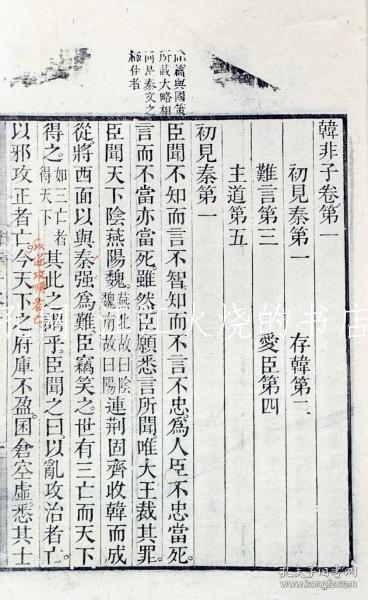 韓非子卷第一
初見秦第一 存韓第二
難言第三 愛臣第四
主道第五
初見秦第一
臣聞不知而言不智知而不言不忠爲人臣不忠當死
言而不當亦當死雖然臣願悉言所聞唯大王裁其罪
臣聞天下陰燕陽魏燕北故曰陰魏南故曰陽連荆固齊收韓而成
從將西面以與秦强爲難臣竊笑之世有三亡而天下
得之如三亡者得天下其此之謂乎臣聞之曰以亂攻治者亡
以邪攻正者亡今天下之府庫不盈囷倉空虛悉其士
篇與國策
所載大略相
何是秦文之
孔夫子旧书网